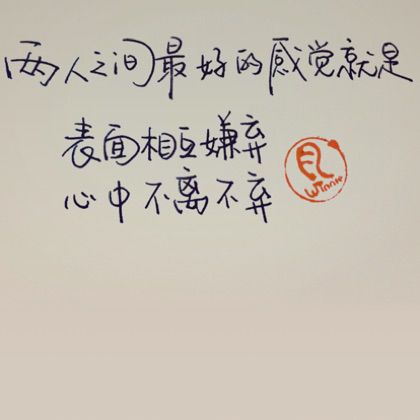 两人之间最好的感觉就是
表面相互嫌弃
心中不离不弃
Winnie